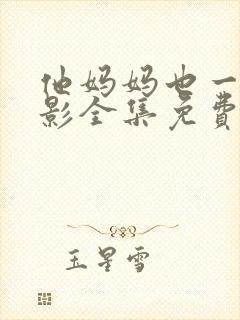 他妈妈也一
影全集免费
玉星雪